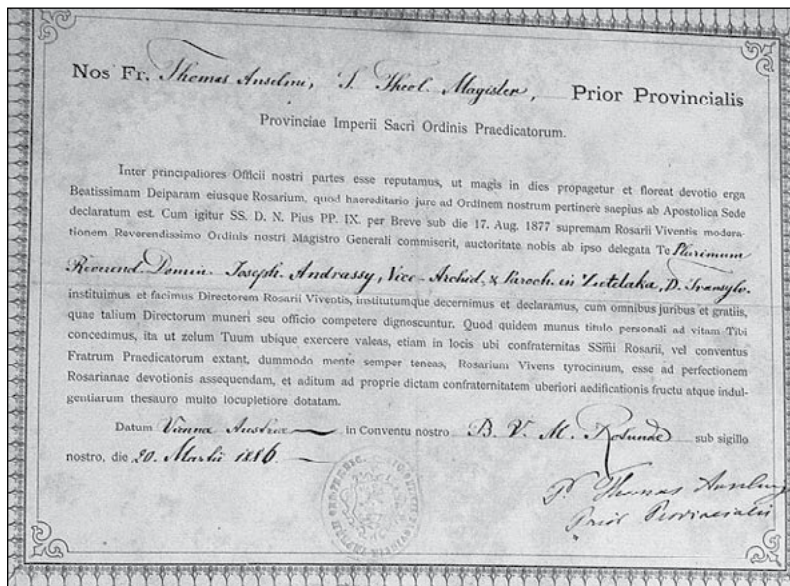 Nos Fr. Thomas Anselmi, S. Theol. Magister, Prior Provincialis
Provinciae Imperii Sacri Ordinis Praedicatorum.
Inter principaliores Officii nostri partes esse reputamus, ut magis in dies propagetur et floreat devotio erga
Beatissimam Deiparam eiusque Rosarium, quod haereditario jure ad Ordinem nostrum pertinere saepius ab Apostolica Sede
declaratum est. Cum igitur SS. D. N. Pius PP. IX. per Breve sub die 17. Aug. 1877 supremam Rosarii Viventis modera-
tionem Reverendissimo Ordinis nostri Magistro Generali commiserit, auctoritate nobis ab ipso delegata Te Plurimum
Reverend. Domin. Joseph. Andrassy, Vice-Archid. & Paroch. in Zetelaka, D. Transylv.
instituimus et facimus Directorem Rosarii Viventis, institutumque decernimus et declaramus, cum omnibus juribus et gratiis,
quae talium Directorum muneri seu officio competere dignoscuntur. Quod quidem munus titulo personali ad vitam Tibi
concedimus, ita ut zelum Tuum ubique exercere valeas, etiam in locis ubi confraternitas SSmi Rosarii, vel conventus
Fratrum Praedicatorum extant, dummodo mente semper teneas, Rosarium Vivens tyrocinium, esse ad perfectionem
Rosarianae devotionis assequendam, et aditum ad proprie dictam confraternitatem uberiori aedificationis fructu atque indul-
gentiarum thesauro multo locupletiore dotatam.
Datum Vienna Austriae in Conventu nostro B. V. M. Rotundae sub sigillo
nostro, die 20. Martii 1886
P. Thomas Anselmi
Prior Provincialis